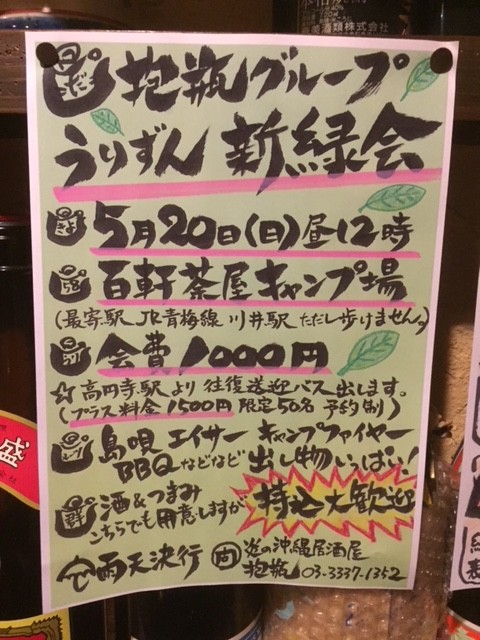 抱瓶グループ
うりずん 新緑会
5月20日(日)昼12時
百軒茶屋キャンプ場
(最寄駅 JR青梅線 川井駅 ただし歩けません。)
会費1000円
☆高円寺駅より往復送迎バス出します。
(プラス料金1500円 限定50名 予約制)
島唄 エイサー キャンプファイヤー
BBQなどなど 出し物いっぱい!
酒&つまみ
こちらでも用意しますが
持込大歓迎
雨天決行
炎の沖縄居酒屋
抱瓶 03-3337-1352
酒類株式会社
盛